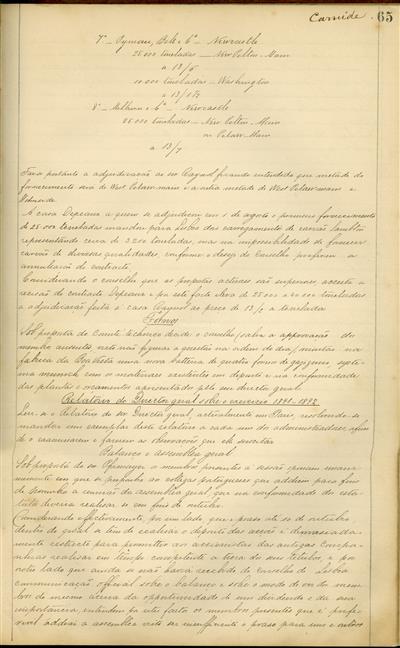 Carnide 65
7º – Pyman, Bell & Cº – Newcastle
25 000 toneladas — New Pelton Main
a 13/6
10 000 toneladas – Washington
a 13/1½
8º – Milburn & Cº – Newcastle
25 000 toneladas – New Pelton Main
ou Pelaw Main
a 13/7
Fará portanto a adjudicação ao snr ficando entendido que metade do
fornecimento será de West Pelaw main e a outra metade de West Pelaw main e
A casa Depeaux a quem se adjudicou em 1 de agosto o primeiro fornecimento
de 25 000 toneladas mandou para Lisboa dois carregamentos de carvão Lambton
representando cerca de 3 200 toneladas, mas na impossibilidade de fornecer
carvão de diversas qualidades conforme o desejo do Conselho preferiu a
annullação do contracto
Considerando o conselho que as propostas actuaes são superiores, acceita a
rescisão do contracto Depeaux e por este facto eleva de 25 000 a 40 000 toneladas
a adjudicação feita á casa ao preço de 13/2 a tonelada
Fornos
Sob proposta do Comité technico decide o conselho, salva a approvação dos
membros ausentes, visto não figurar a questão na ordem do dia, montar na
fabrica da Boa Vista uma nova bateria de quatro fornos de gazogenio systema
Munich com os materiaes existentes em deposito e na conformidade
das plantas e orçamentos apresentados pelo snr director geral
Relatorio do Director geral sobre o exercicio 1891–1892
Leu-se o Relatorio do snr Director geral, actualmente em Paris, resolvendo-se
mandar um exemplar deste relatorio a cada um dos administradores, afim
de o examinarem e fazerem as observações que elle suscitar
Balanço e assemblea geral
Sob proposta do snr os membros presentes á sessão opinam unanimemente
em que se proponha aos collegas portuguezes que addiem para fins
de Novembro a reunião da assemblea geral, que na conformidade dos estatutos
deveria realisar-se em fins de outubro.
Considerando effectivamente, por um lado, que o praso até 10 de outubro
dentro do qual se tem de realisar o deposito das acções é demasiadamente
restricto para permittir aos accionistas das antigas Companhias
realisar em tempo competente a troca dos seus titulos, e por
outro lado que ainda se não havia recebido do Conselho de Lisboa
communicação official sobre o balanço e sobre o modo de ver dos membros
do mesmo ácerca da opportunidade de um dividendo e da sua
importancia, entendem por este facto os membros presentes que é preferivel
addiar a assemblea visto ser insufficiente o praso para uns e outros